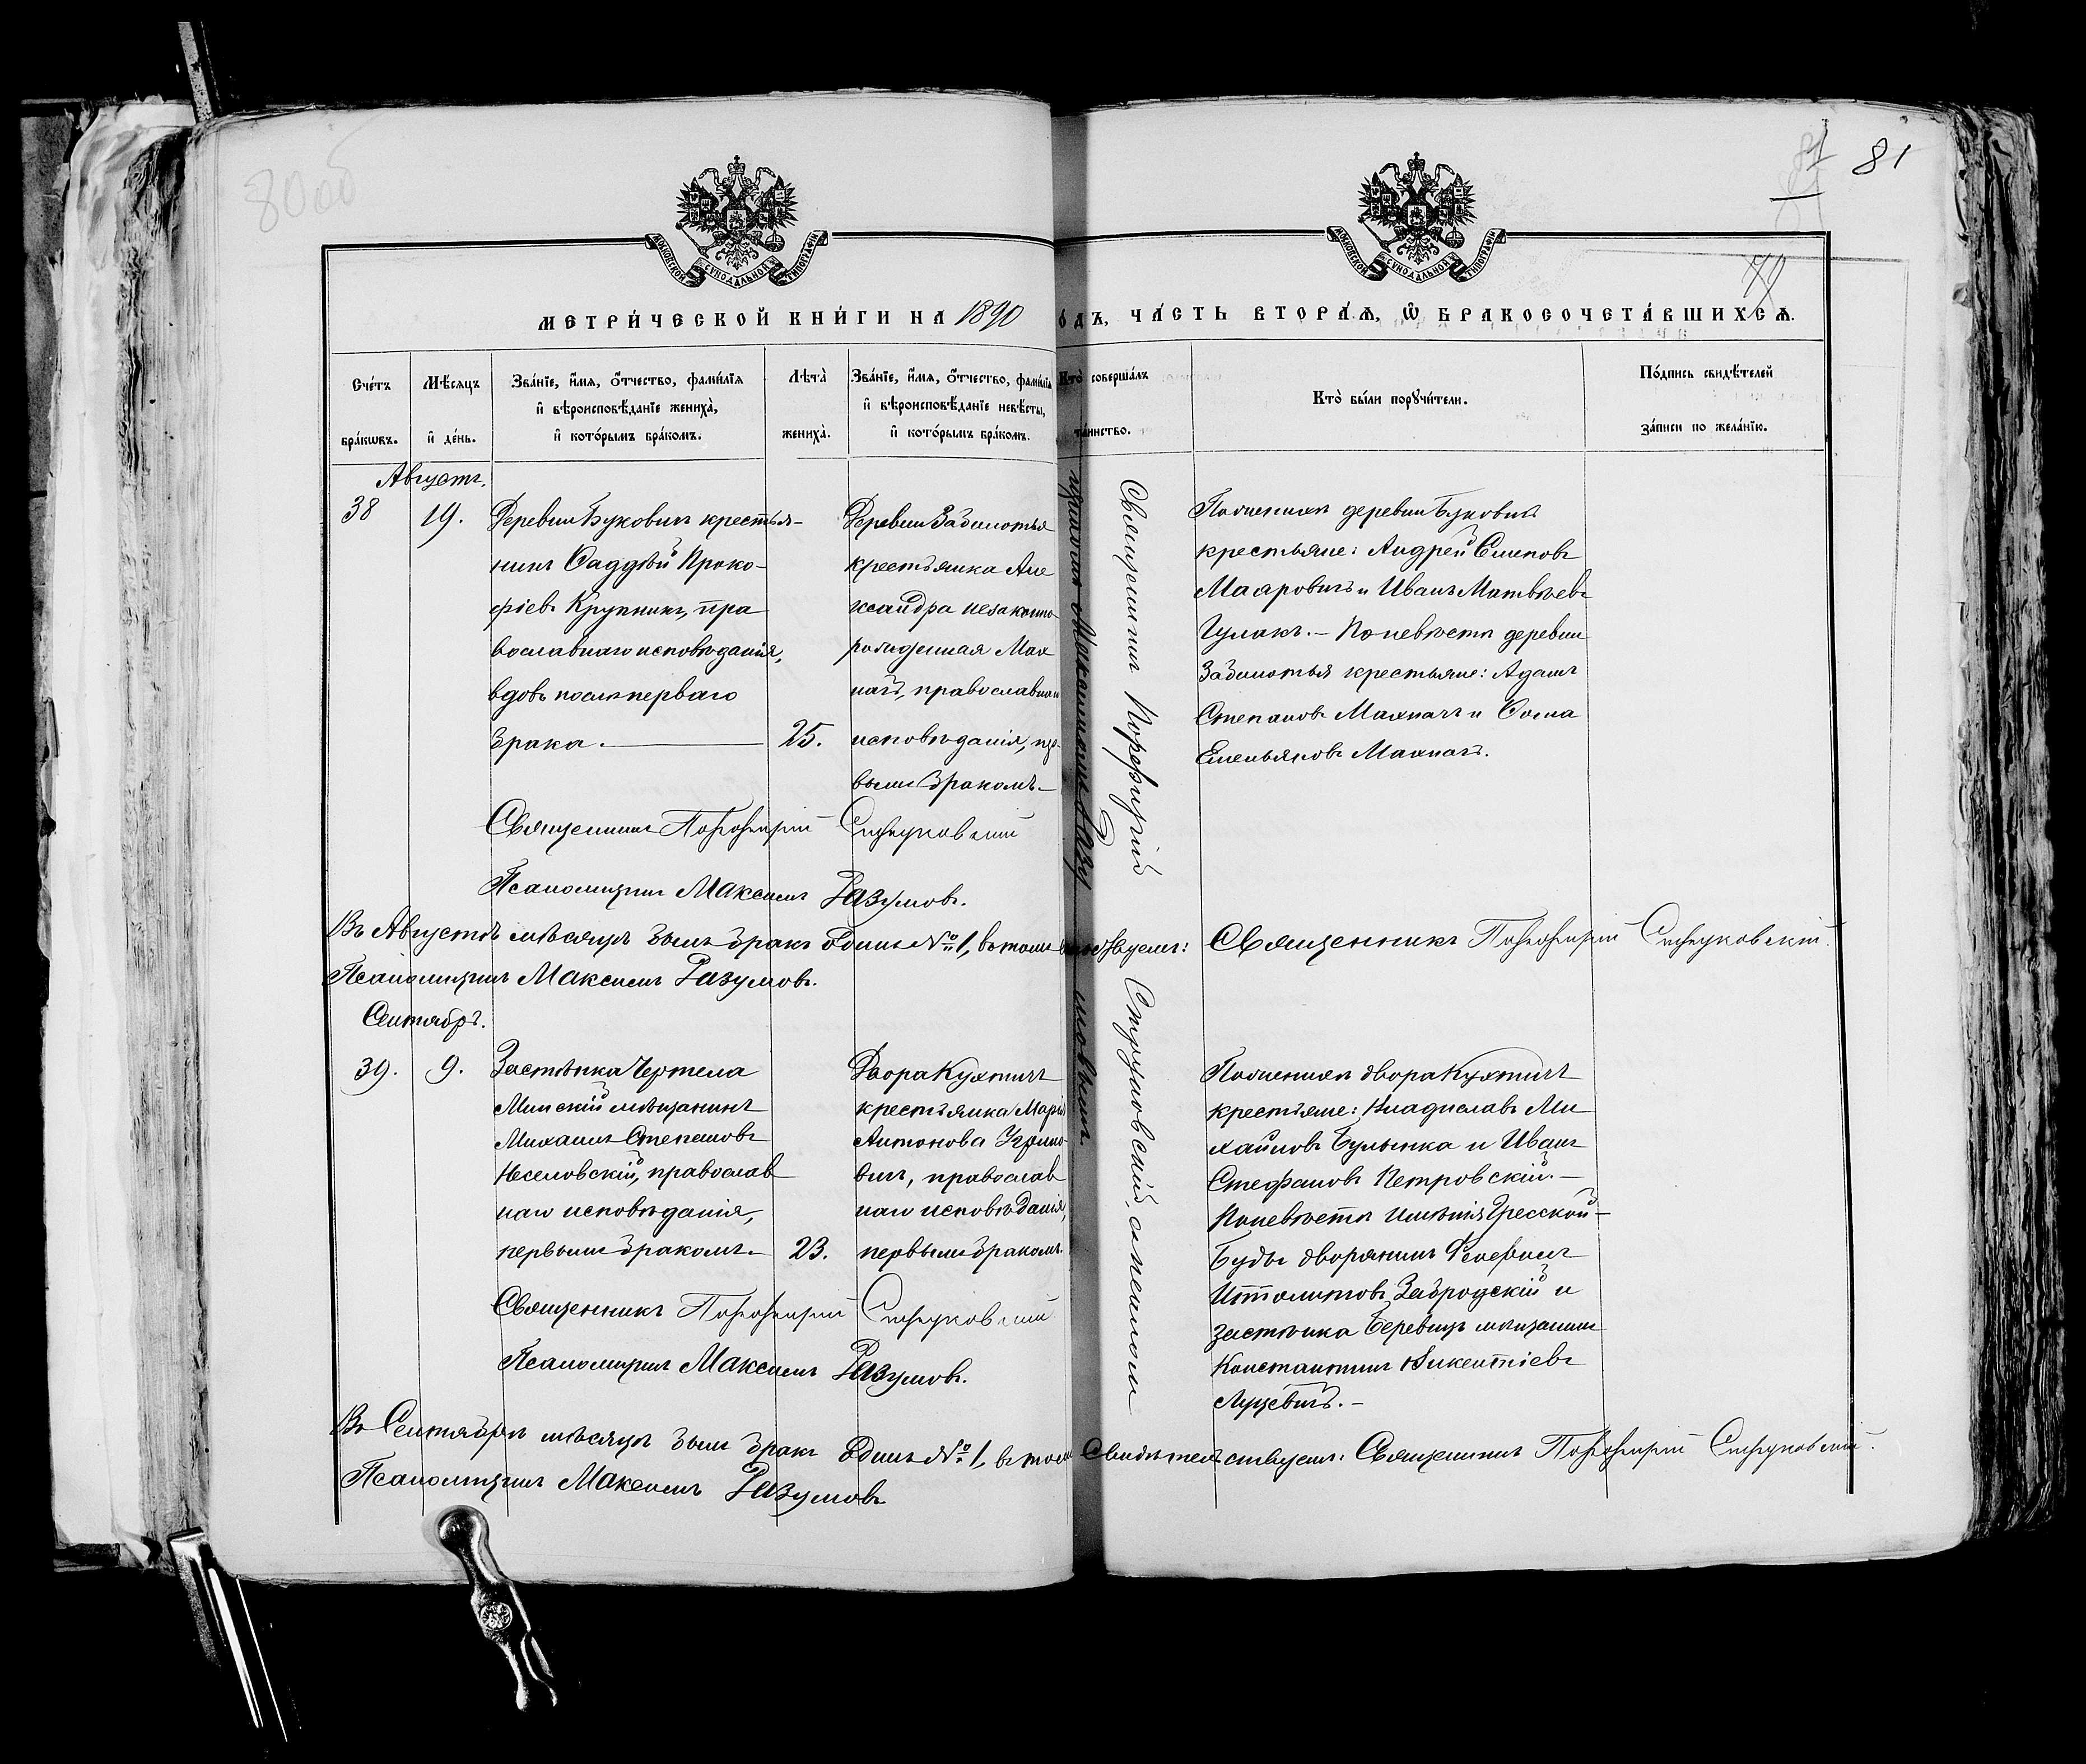 80 об
81
81
МОСКОВСКОЙ СУНОДАЛЬНОЙ ТИПОГРАФІИ
МОСКОВСКОЙ СУНОДАЛЬНОЙ ТИПОГРАФІИ
МЕТРИ́ЧЕСКОЙ КНИ́ГИ НА 1890
О́ДЪ, ЧА́СТЬ ВТОРА́Ѧ, Ѡ҆ БРАКОСОЧЕТА́ВШИХСѦ.
Сче́тъ
бра́кѡвъ.
Мѣ́сяцъ
и҆ де́нь.
Зва́нїе, и҆́мѧ, о҆́тчество, фами́лїѧ
и҆ вѣроисповѣ́данїе жениха̀,
и҆ кото́рымъ бра́комъ.
Лѣта̀
жениха̀.
Зва́нїе, и҆́мѧ, о҆́тчество, фами́лїѧ
и҆ вѣроисповѣ́данїе невѣ́сты,
и҆ кото́рымъ бра́комъ.
Кто̀ соверша́лъ
та́инство.
Кто̀ бы́ли порꙋчи́тели.
По́дпись свидѣ́телей
за́писи по жела́нїю.
Августъ.
38
19.
Деревни Буковичъ крестья-
нинъ Фаддѣй Проко-
фіевъ Крупникъ, пра
вославнаго исповѣданія,
вдовъ послѣ перваго
брака.
25.
Деревни Заболотья
крестьянка Але
ксандра незаконно-
рожденная Мах
начъ, православнаго
исповѣданія, пер-
вымъ бракомъ.
Священникъ Порфирій Струковскій, с псаломщикомъ Максимомъ Разумовымъ.
По женихѣ деревни Буковичъ
крестьяне: Андрей
и Иванъ Матвѣевъ
Гулакъ. — По невѣстѣ деревни
Заболотья крестьяне: Адамъ
Степановъ Махначъ и Фома
Емельяновъ Махначъ.
Священникъ Порфирій Струковскій
Псаломщикъ Максимъ Разумовъ.
Въ Августѣ мѣсяцѣ былъ бракъ одинъ № 1, въ томъ свидѣтельствуемъ: Священникъ Порфирій Струковскій.
Псаломщикъ Максимъ Разумовъ.
Сентябрь.
39.
9.
Застѣнка Чертежа
Минскій мѣщанинъ
Михаилъ Степановъ
Неселовскій, православ
наго исповѣданія,
первымъ бракомъ.
23.
Двора Кухтичъ
крестьянка Марія
Антонова
вичъ, православ
наго исповѣданія,
первымъ бракомъ.
По женихѣ двора Кухтичъ
крестьяне: Владиславъ Ми
хайловъ Булынка и Иванъ
Стефановъ Петровскій. —
По невѣстѣ имѣнія Гресской-
Буды дворянинъ
Ипполитовъ Забродскій и
застѣнка мѣщанинъ
Константинъ Викентіевъ
Луцевичъ. —
Священникъ Порфирій Струковскій
Псаломщикъ Максимъ Разумовъ.
Въ Сентябрѣ мѣсяцѣ былъ бракъ одинъ № 1, въ томъ свидѣтельствуемъ: Священникъ Порфирій Струковскій.
Псаломщикъ Максимъ Разумовъ